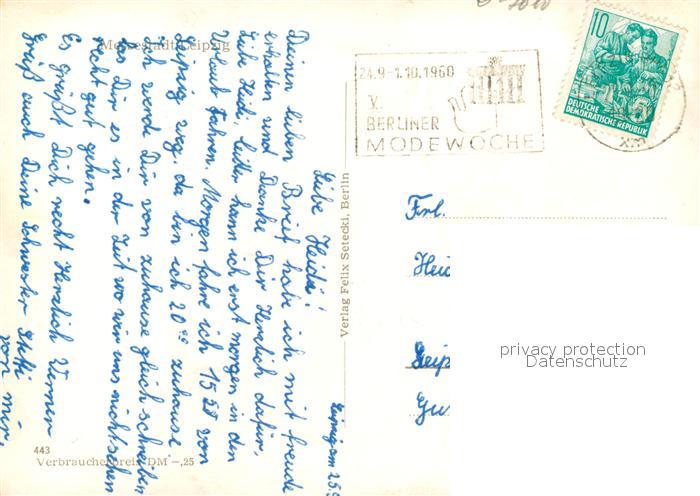 Messestadt Leipzig
Leipzig am 25.9
Liebe Heidi!
Deinen lieben Brief hab ich mit freude
erhalten und Danke Dir Herzlich dafür.
Liebe Heidi, leider kann ich erst morgen in den
Urlaub fahren. Morgen fahre ich 15 20 von
Leipzig weg. da bin ich 20 00 zuhause
Ich werde Dir von zuhause gleich schreiben
das Dir es in der Zeit wo wir uns nicht sehen
recht gut gehen.
Es grüßt Dich recht Herzlich Werner
Grüß auch Deine Schwester
von mir.
443
Verbraucherpreis DM -,25
Verlag Felix Setecki, Berlin
24.9-1.10.1960
V.
BERLINER
MODEWOCHE
10
DEUTSCHE
DEMOKRATISCHE REPUBLIK
Frl.
Heid
Leip
privacy protection
Datenschutz